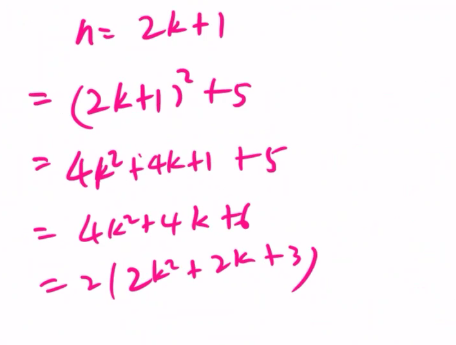 n = 2k+1
= (2k+1)² +5
= 4k²+4k+1 +5
= 4k²+4k+6
= 2(2k²+2k+3)